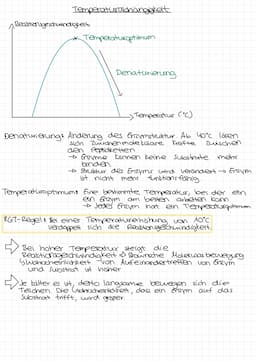 Temperaturabhängigkeit
Reaktionsgeschwindigkeit
Temperaturoptimum
Denaturierung
Temperatur (°C)
Denaturierung: Änderung des Enzymstruktur. Ab 40°C lösen
sich zwischenmolekulare Kräfte zwischen
den Peptidketten
→ Enzyme können keine Substrate mehr
binden
→ Struktur des Enzyms wird verändert → Enzym
ist nicht mehr funktionsfähig
Temperaturoptimum: Eine bestimmte Temperatur, bei der ein
ein Enzym am besten arbeiten kann
→ Jedes Enzym hat ein Temperaturoptimum
RGT-Regel: Bei einer Temperaturerhöhung von 10°C
verdoppelt sich die Reaktionsgeschwindigkeit
Bei hoher Temperatur steigt die
Reaktionsgeschwindigkeit → Brownsche Molekularbewegung
(Wahrscheinlichkeit vom Aufeinandertreffen von Enzym
und Substrat ist höher
Je kälter es ist, desto langsamer bewegen sich die
Teilchen. Die Wahrscheinlichkeit, dass ein Enzym auf das
Substrat trifft, wird